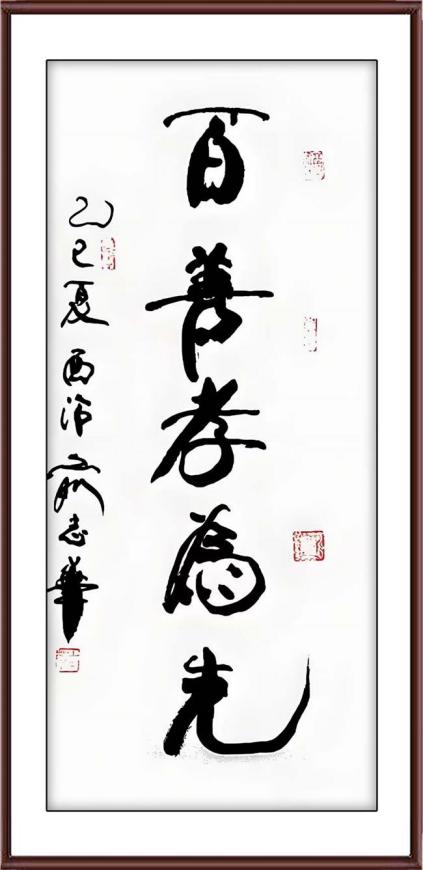 百善孝為先
乙巳夏西泠 志華